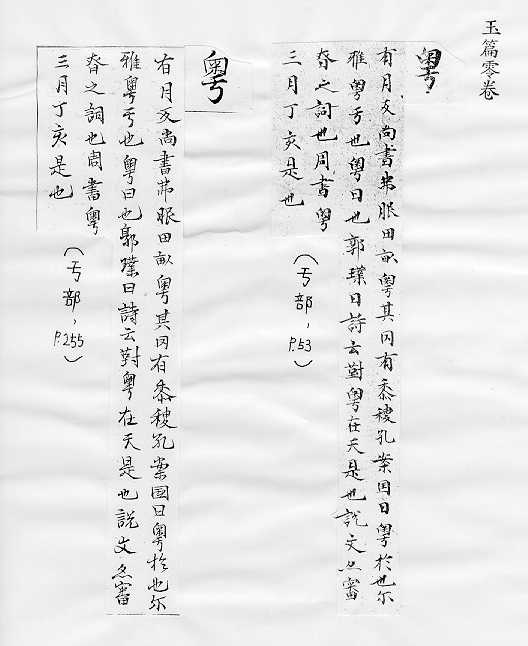 玉篇零卷
粵
有月反尚書弗服田畝粵其罔有黍稷孔安囯曰粵於也尔
雅粵亐也粵曰也郭璞曰詩云對粵在天是也說文亦審
昚之詞也周書粵
三月丁亥是也
（亐部，P.53）
粵
有月反尚書弗服田畝粵其罔有黍稷孔安國曰粵於也尔
雅粵亐也粵曰也郭璞曰詩云對粵在天是也說文亦審
昚之詞也周書粵
三月丁亥是也
（亐部，P.255）